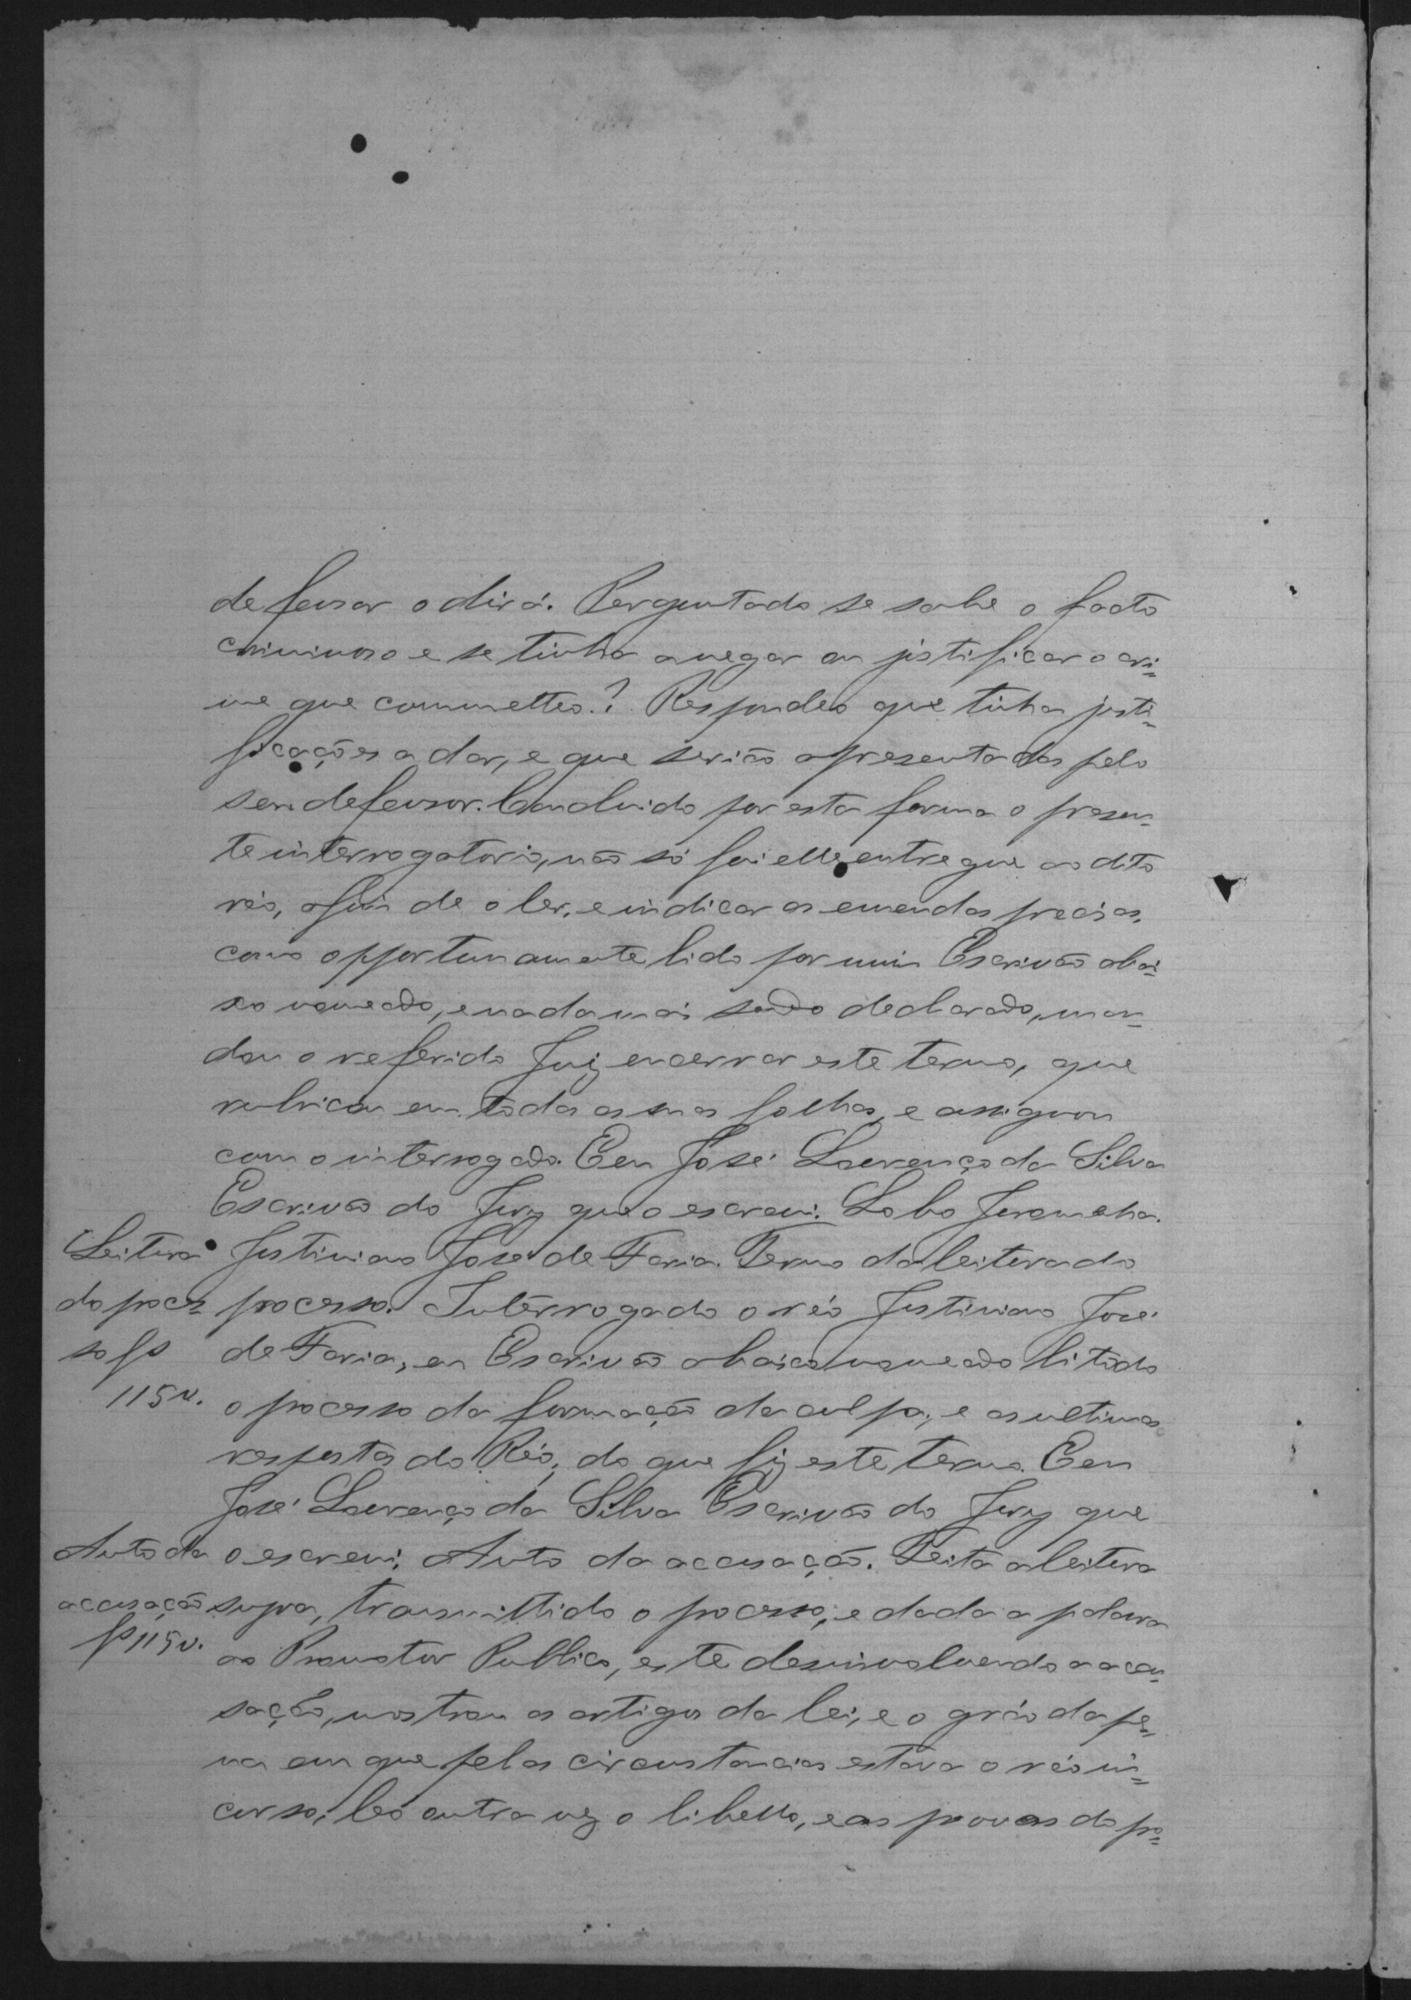 defensor o dirá. Perguntado se sabe o facto
criminoso e se tinha a negar ou justificar o cri=
me que commetteo.? Respondeo que tinha justi=
ficações a dar, e que serião apresentadas pelo
seu defensor. Concluido por esta forma o presen=
te interrogatorio, não só foi elle entregue ao dito
réo, afim de o ler, e indicar as emendas precisas,
como opportunamente lido por mim Escrivão abai=
xo nomeado, e nada mais sendo declarado, man=
dou o referido Juiz encerrar este termo, que
rubricou em todas as suas folhas, e assignou
com o interrogado. Eeu José Lourenço da Silva
Escrivão do Jury que o escrevi. Lobo Jurumenha.
Justiniano José de Faria. Termo da leitura do
processo. Interrogado o réo Justiniano José
de Faria, eu Escrivão abaixo nomeado li todo
o processo da formação da culpa, e as ultimas
respostas do Réo, do que fiz este termo. Eeu
José Lourenço da Silva Escrivão do Jury que
o escrevi. Auto da accusação. Feita a leitura
supra, transmittido o processo, e dada a palavra
ao Promotor Publico, este desenvolvendo a accu=
sação, mostrou os artigos da lei, e o gráo da pe=
na em que pelas circunstancias estava o réo in=
curso, leo outra vez o libello, e as provas do pro=
Leitura
do proces=
so fs
115v.
Auto da
accusação
fs 115v.